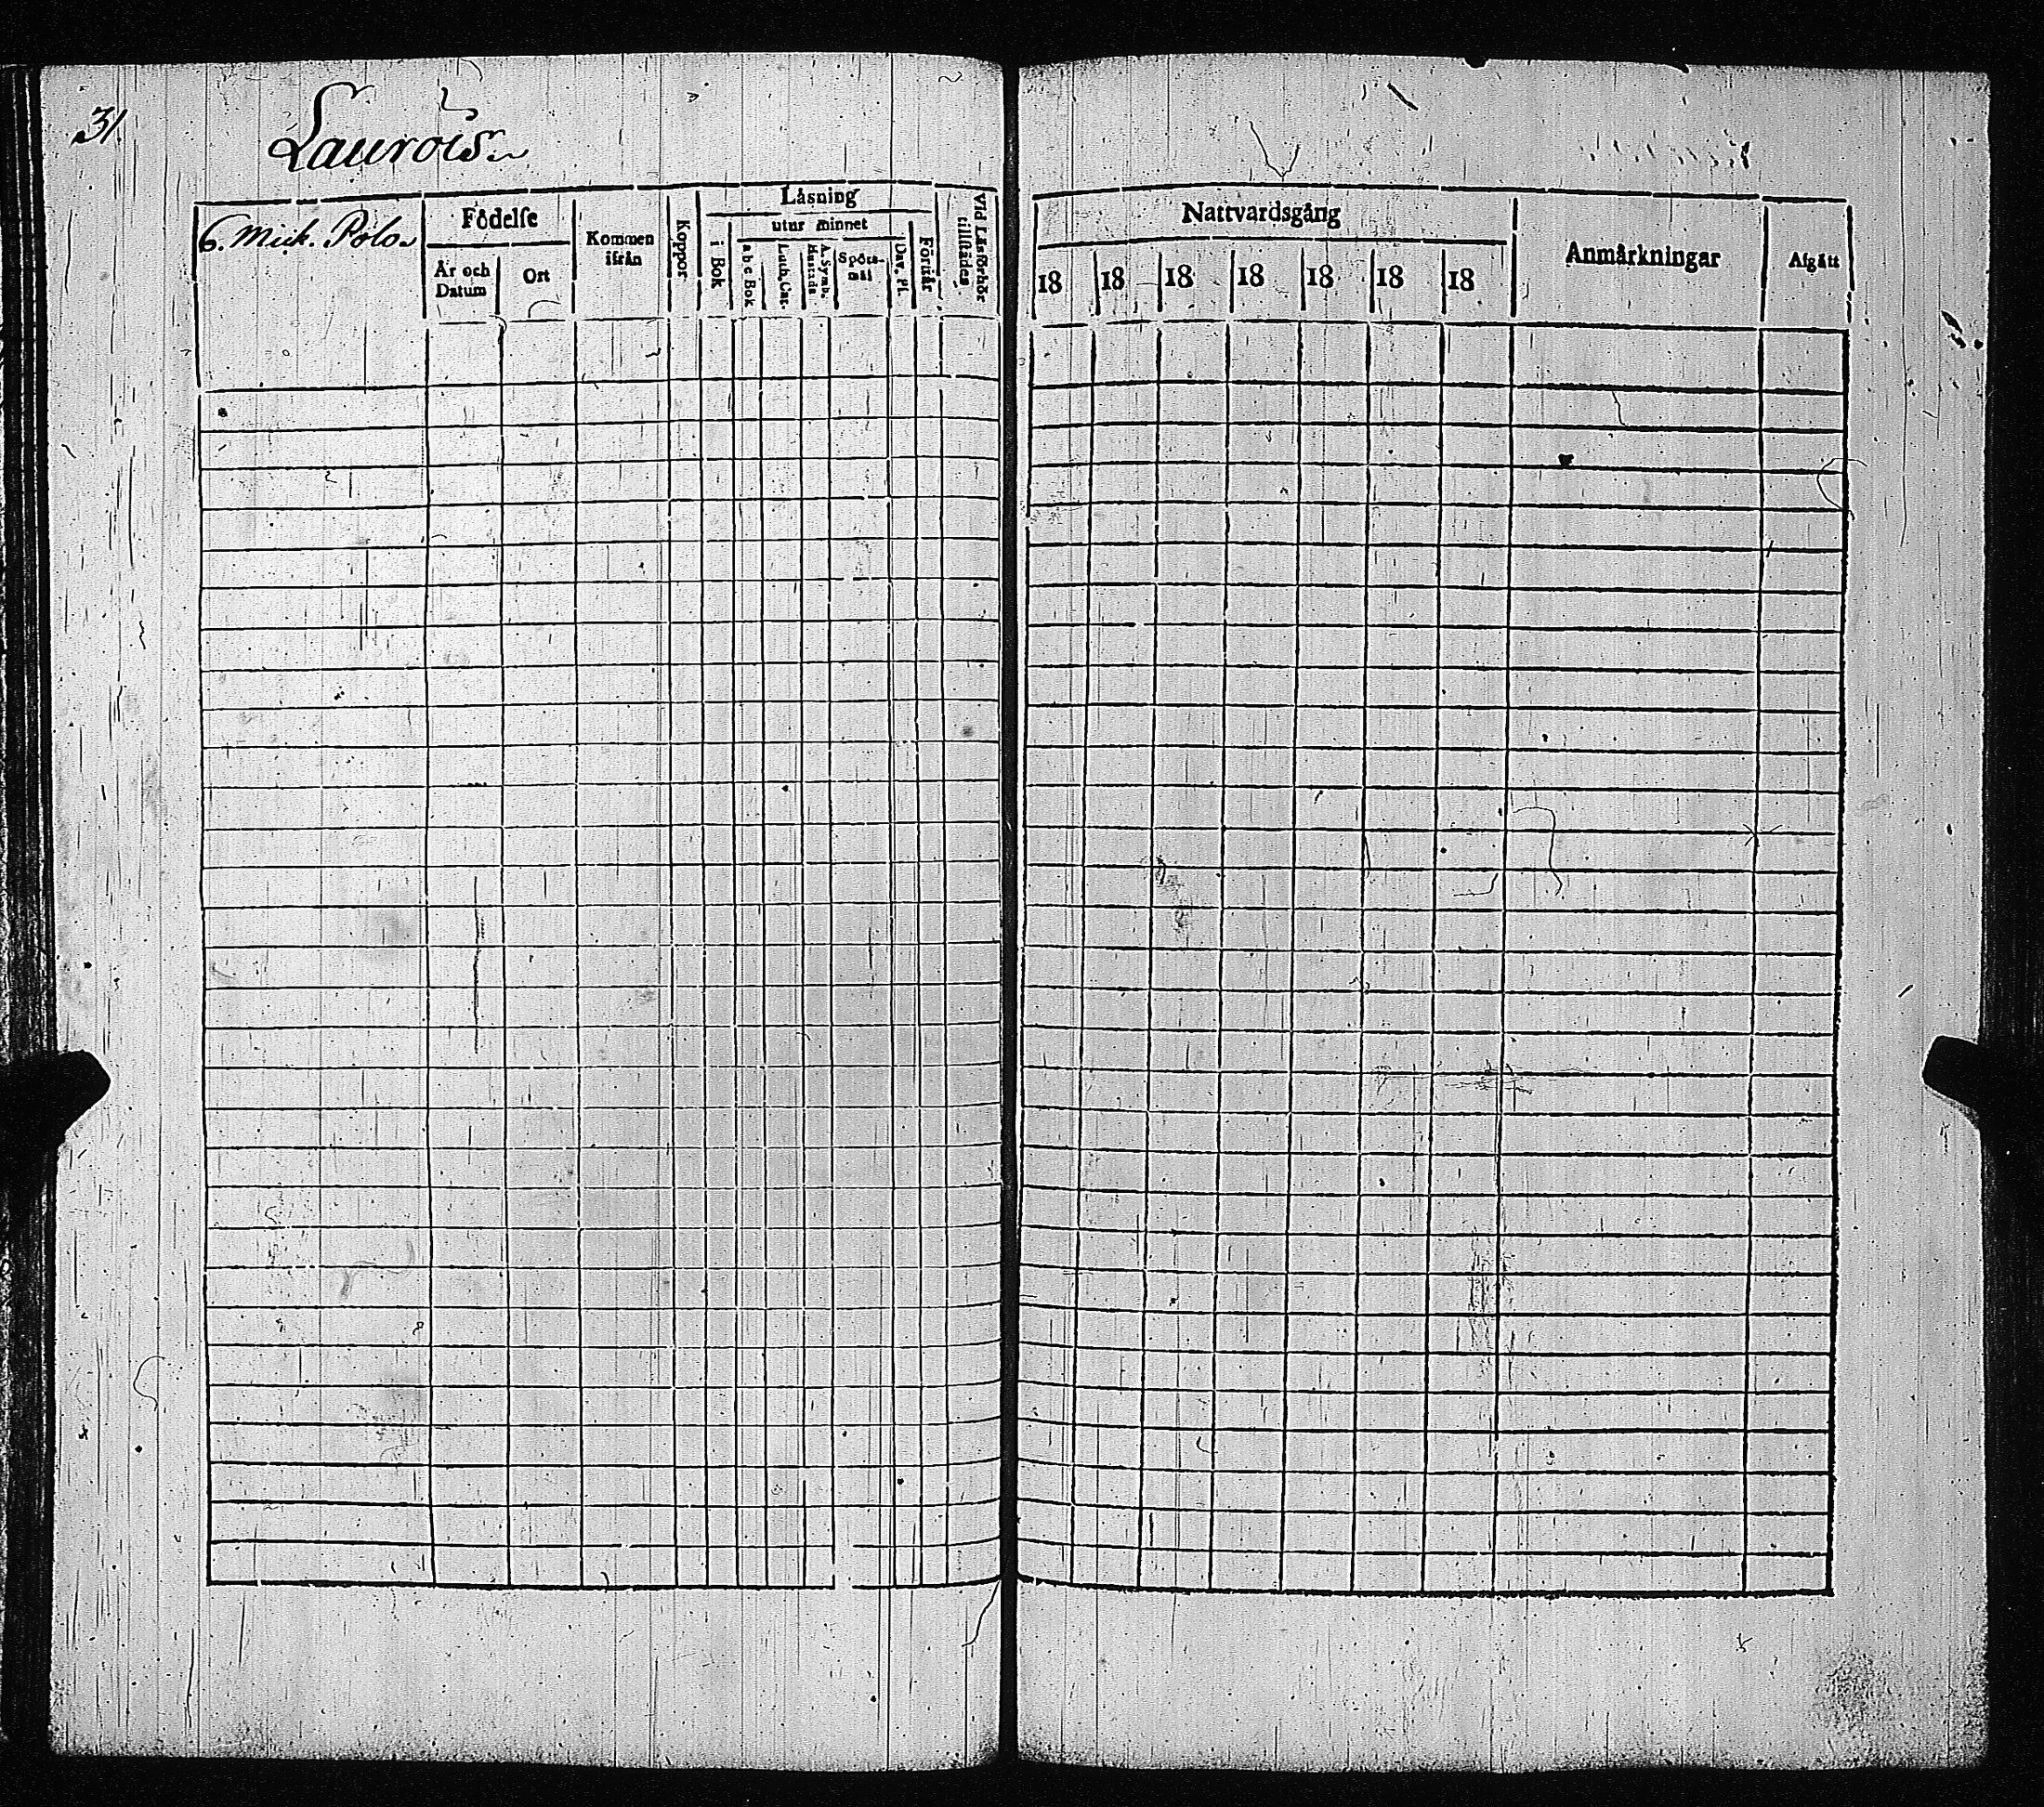 31.
Laurois.
6. Mick. Polo.
Födelse
År och Datum
Ort
Kommen ifrån
Koppor
Läsning
i Bok
utur minnet
a b c Bok
Luth. Cat.
A. Symb.
Hustafla
Spörs-mål
Dav. Ps.
Förstår
Vid Läsförhör tillstädes
Nattvardsgång
18 18 18 18 18 18 18
Anmärkningar
Afgått